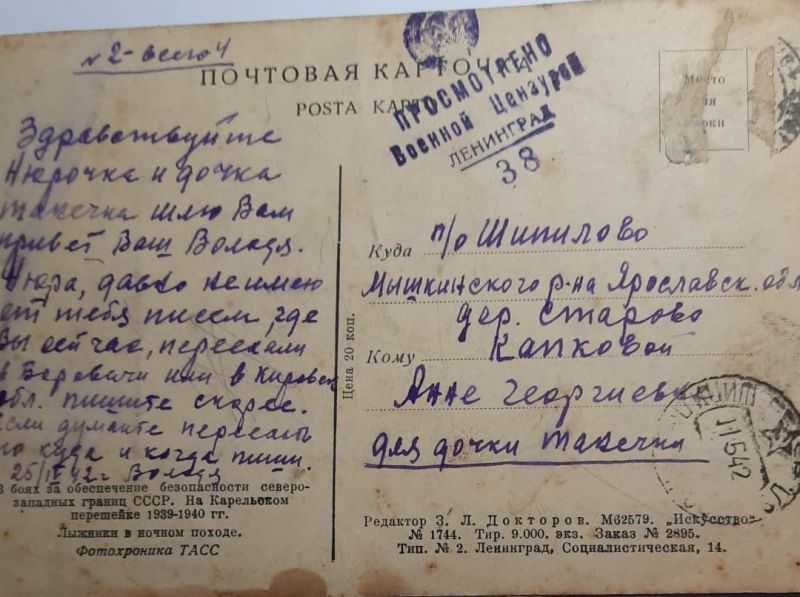 № 2 - всего 4
ПОЧТОВАЯ КАРТОЧКА
POSTA KAR
ПРОСМОТРЕНО
Военной Цензурой
ЛЕНИНГРАД
38
Место
для
марки
Здравствуйте
Нюрочка и дочка
Такечка шлю Вам
привет Ваш Володя.
Нюра, давно не имею
от тебя писем, где
Вы сейчас, переехали
в Боровичи или в Кировск
обл. пишите скорее.
если думаете переезжать
то куда и когда пиши.
25/IV 42 г Володя
В боях за обеспечение безопасности северо-
западных границ СССР. На Карельском
перешейке 1939-1940 гг.
Лыжники в ночном походе.
Фотохроника ТАСС
Цена 20 коп.
Куда п/о Шипилово
Мышкинского р-на Ярославск. обл
дер. Старово
Кому Капковой
Анне Георгиевне
для дочки Такечки
11.5.42
Редактор З. Л. Докторов. М62579. „Искусство“
№ 1744. Тир. 9.000. экз. Заказ № 2895.
Тип. № 2. Ленинград, Социалистическая, 14.